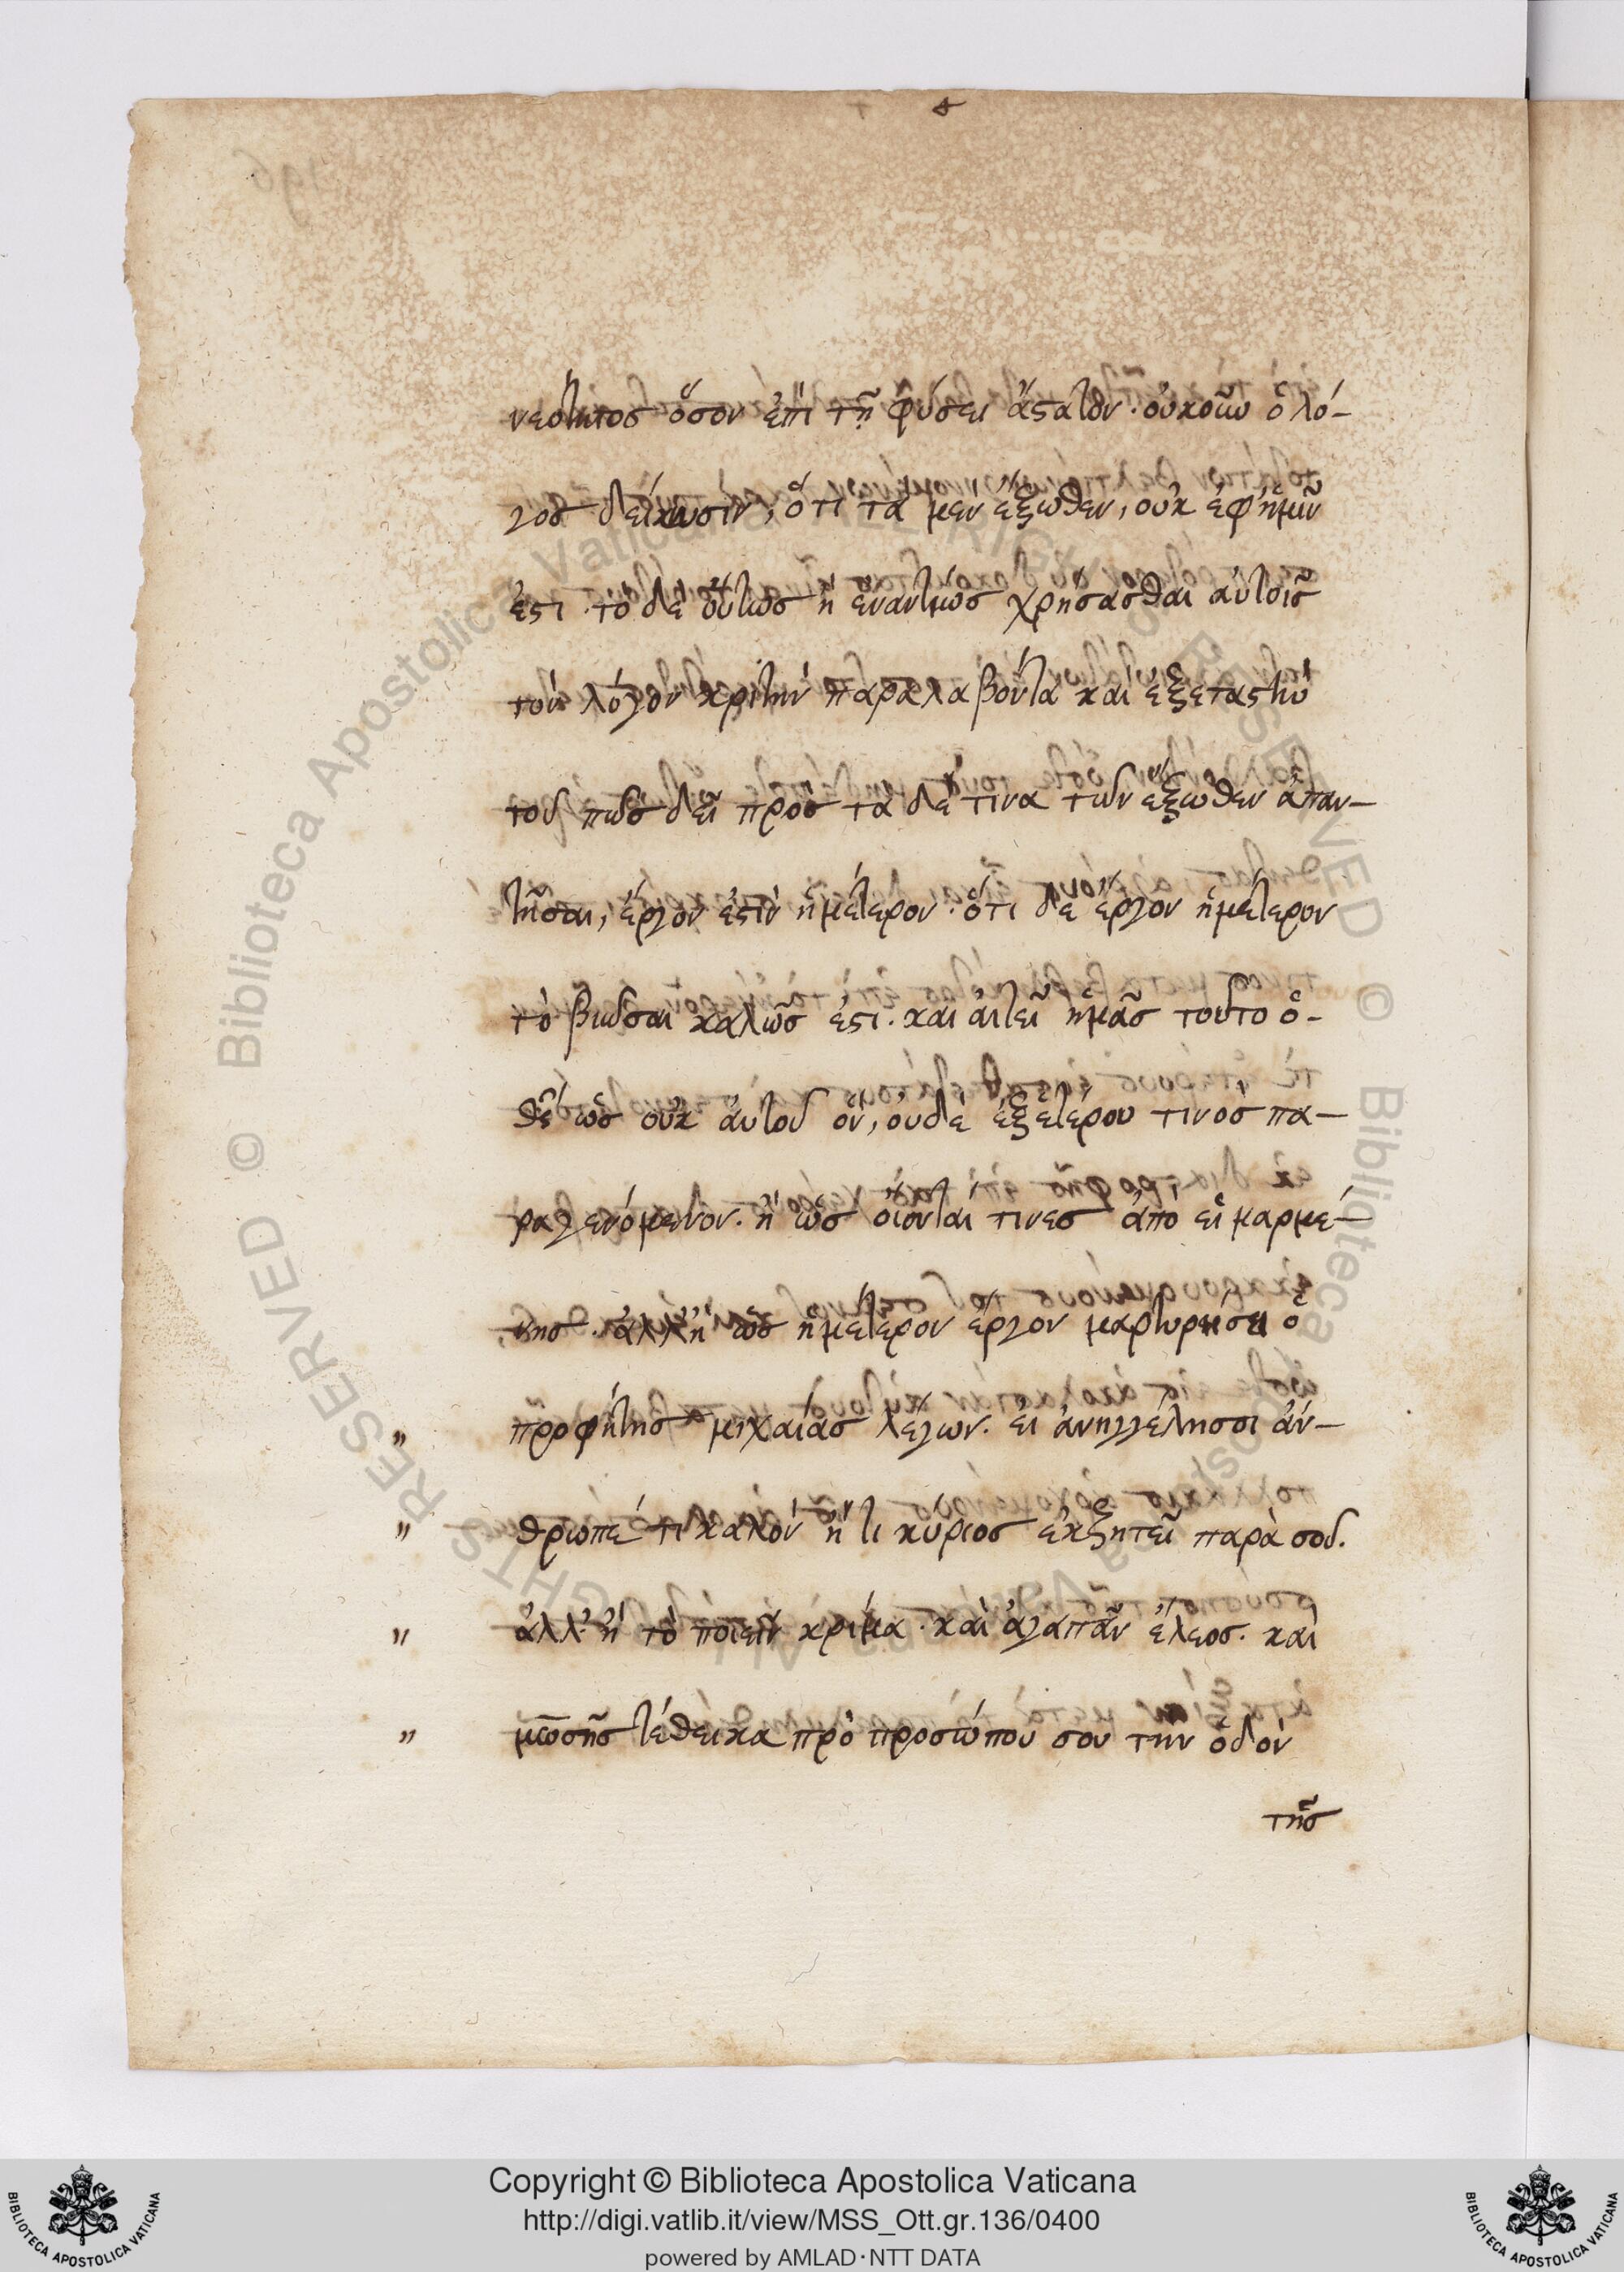 νεότητος ὅσον ἐπὶ τῇ φύσει ἄςατον · οὐκοῦν ὁ λό-
γος δείκνυσιν, ὅτι τὰ μὲν ἔξωθεν, οὐκ ἐφ ἡμῖν
ἐςι · τὸ δὲ οὕτως ἢ ἐναντίως χρήσασθαι αὐτοῖς
τὸν λόγον κριτὴν παραλαβόντα καὶ ἐξεταςὴν
τοῦ πῶς δεῖ πρὸς τὰ δέ τινα τῶν ἔξωθεν ἀπαν-
τῆσαι, ἔργον ἐςὶν ἡμέτερον · ὅτι δὲ ἔργον ἡμέτερον
τὸ βιῶσαι καλῶς ἐςι · καὶ αἰτεῖ ἡμᾶς τοῦτο ὁ-
θς ὡς οὐκ αὐτοῦ ὂν, οὐδὲ ἐξ ἑτέρου τινὸς πα-
ραγενόμενον · ἢ ὡς οἴονταί τινες ἀπὸ εἱμαρμέ-
νης · ἀλλ ἢ ὡς ἡμέτερον ἔργον μαρτυρήσει ὁ
" προφήτης μιχαίας λέγων · εἰ ἀνηγγέλησοι ἄν-
" θρωπέ τι καλὸν ἤ τι κύριος ἐκζητεῖ παρὰ σοῦ.
" ἀλλ' ἢ τὸ ποιεῖν κρίμα · καὶ ἀγαπᾶν ἔλεος · καὶ
" μωσῆς τέθεικα πρὸ προσώπου σου τὴν ὁδὸν
τῆς
Copyright © Biblioteca Apostolica Vaticana
http://digi.vatlib.it/view/MSS_Ott.gr.136/0400
powered by AMLAD·NTT DATA
BIBLIOTECA APOSTOLICA VATICANA
BIBLIOTECA APOSTOLICA VATICANA